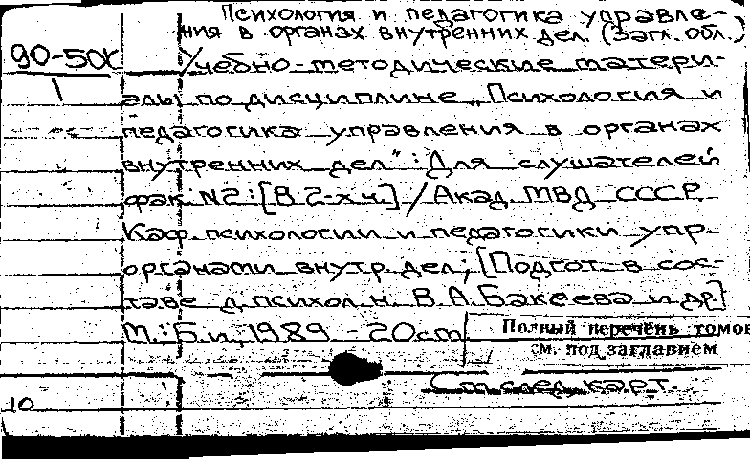 Психология и педагогика управле-
ния в органах внутренних дел. (Загл. обл.)
90-50К Учебно-методические матери-
1
алы по дисциплине „Психология и
педагогика управления в органах
внутренних дел“: Для слушателей
фак. №2: [В 2-х ч.] / Акад. МВД СССР.
Каф. психологии и педагогики упр.
органами внутр. дел; [Подгот. в сос-
таве д. психол. н. В. А. Бакеева и др.]
М.: Б. и., 1989. - 20 cm
Полный перечень томов
см. под заглавием
См. след. карт.
10